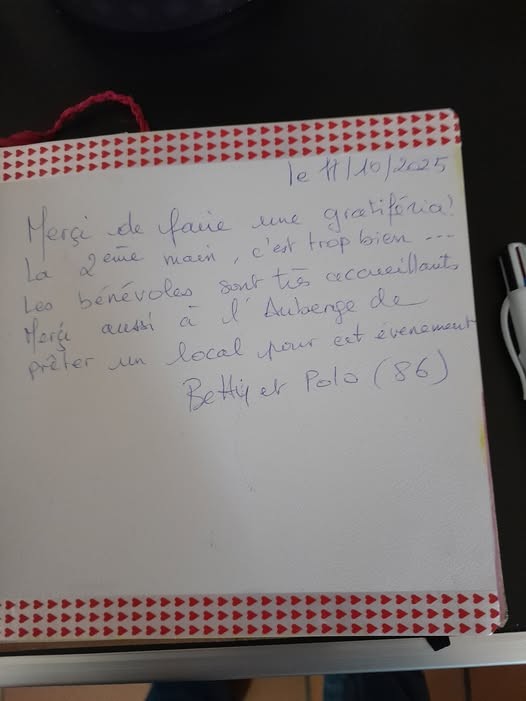 le 11/10/2025
Merçi de faire une gratiféria!
La 2ème main, c'est trop bien ...
Les bénévoles sont très accueillants
Merçi aussi à l'Auberge de
prêter un local pour cet évenement
Betty et Polo (86)